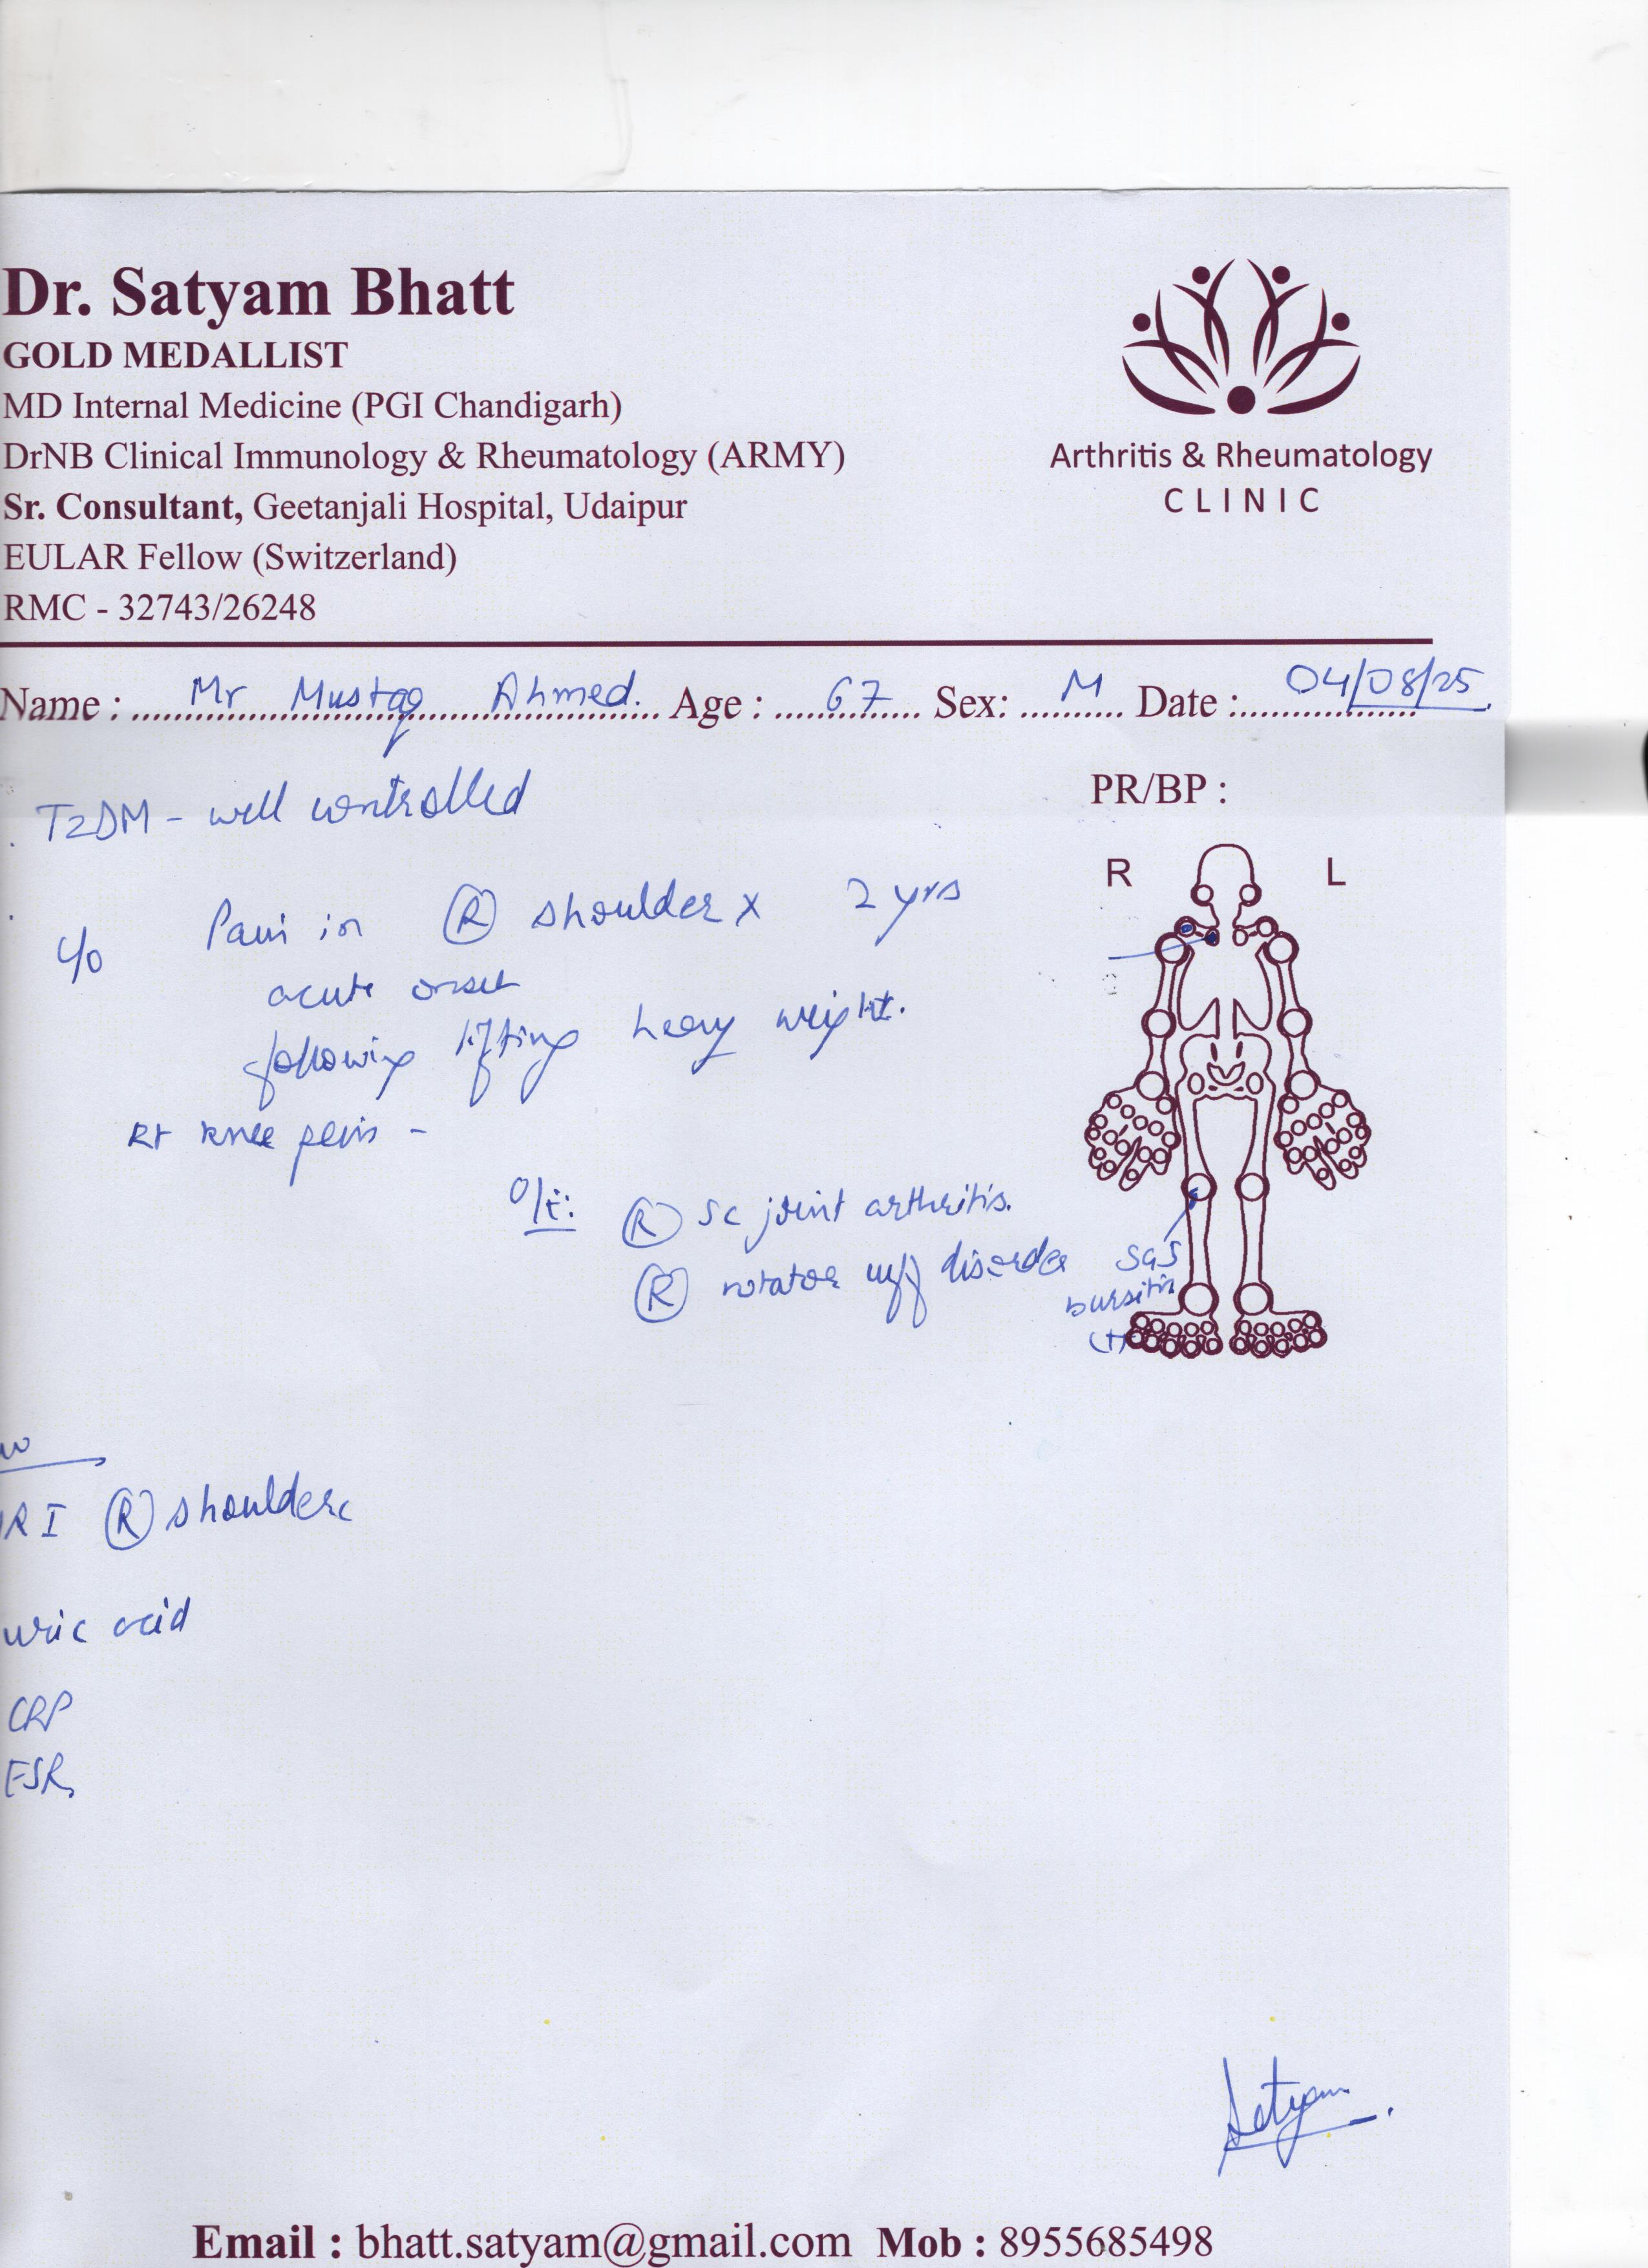 Dr. Satyam Bhatt
GOLD MEDALLIST
MD Internal Medicine (PGI Chandigarh)
DrNB Clinical Immunology & Rheumatology (ARMY)
Sr. Consultant, Geetanjali Hospital, Udaipur
EULAR Fellow (Switzerland)
RMC - 32743/26248
Arthritis & Rheumatology
CLINIC
Name : Mr Mustaq Ahmed. Age : 67 Sex: M Date : 04/08/25
T2DM - well controlled
PR/BP :
R L
c/o Pain in (R) shoulder x 2 yrs
acute onset
following lifting heavy weight.
Rt knee pain -
O/E: (R) SC joint arthritis.
(R) rotator cuff disorder
SGS
bursitis
(+)
RI (R) shoulder
uric acid
CRP
ESR
Satyam
Email : bhatt.satyam@gmail.com Mob : 8955685498